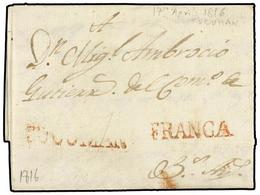 17 April 1816
TUCUMAN
A
Dn. Migl. Ambrocio
Gutierrz. del Como. de
TUCUMAN FRANCA
Bs. As.
1816